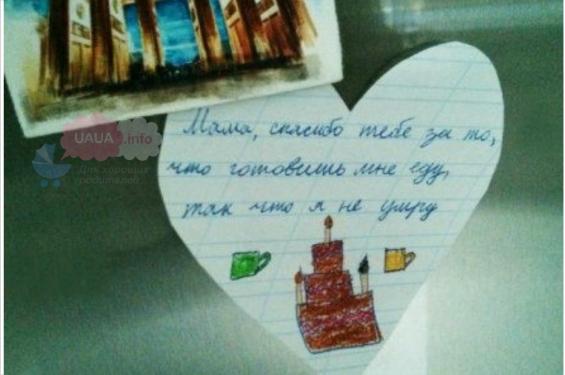 Мама, спасибо тебе за то,
что готовишь мне еду,
так что я не умру
UAUA.info
Для хороших
родителей